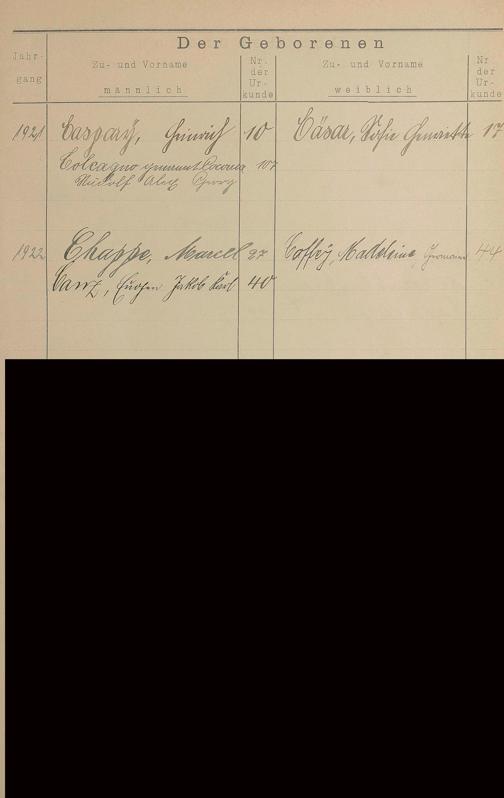 Der Geborenen
Jahr-
gang
Zu- und Vorname
männlich
Nr.
der
Ur-
kunde
Zu- und Vorname
weiblich
Nr
der
Ur-
kunde
1921 Caspary, Heinrich 10 Cäsar, Sofie Henriette 17
Colcagno genannt 107
Rudolf Alex Georg
1922 Chappe, Marcel 37 Coffey, Madeleine, Germaine 44
Canz, Eugen Jakob Karl 40